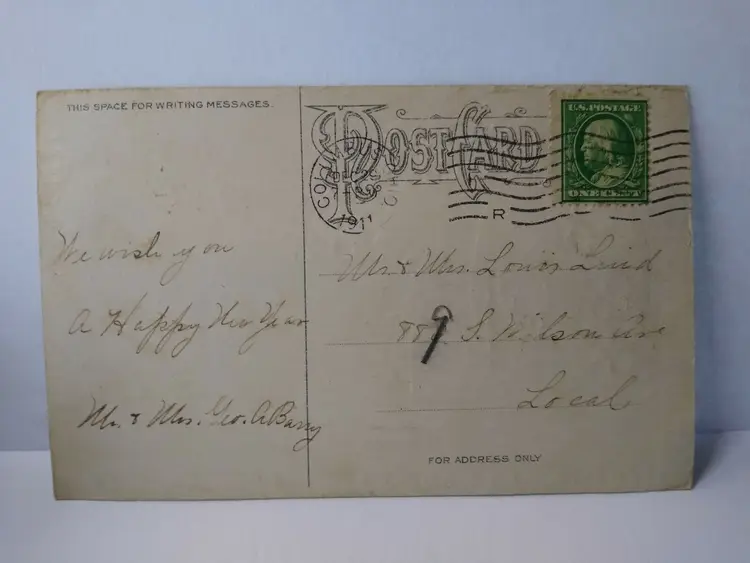 THIS SPACE FOR WRITING MESSAGES.
POST CARD
U.S. POSTAGE
ONE CENT
1911
R
We wish you
A Happy New Year
Mr. & Mrs. Geo. A Barry
Mr. & Mrs. Louis
9
S. Wilson Ave
Local
FOR ADDRESS ONLY